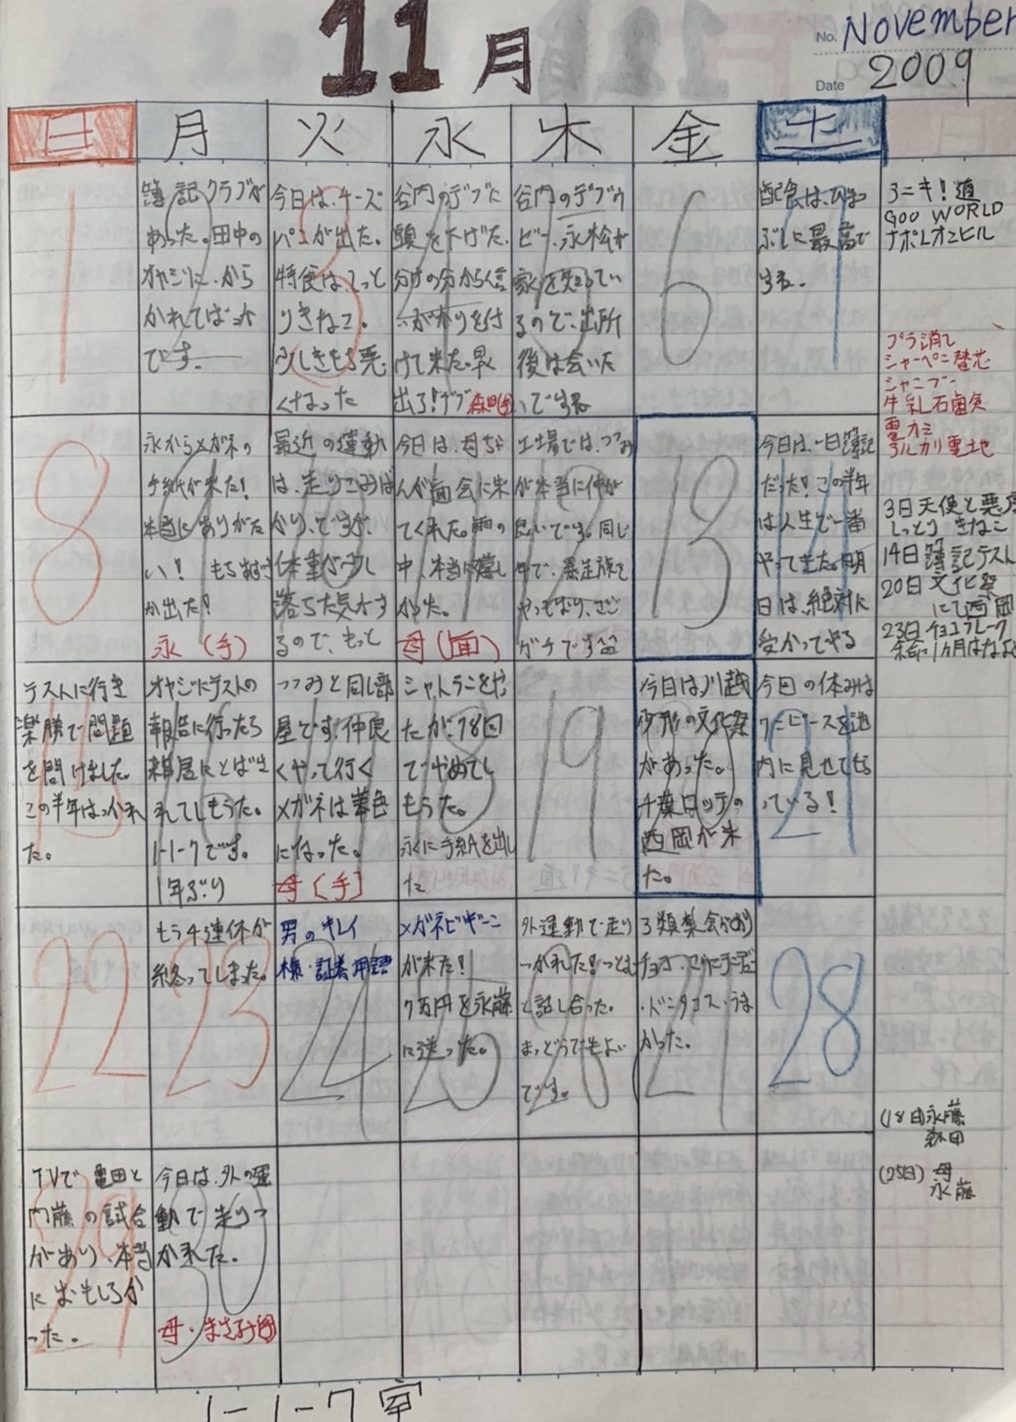 11月
No. November
Date 2009
日 月 火 水 木 金 土
1
2
簿記クラブが
あった。田中の
オヤジに、から
かれてばっか
です。
3
今日は、チーズ
パンが出た。
特食は、しっと
りきなこ。
少しきもち悪
くなった
4
谷内のデブに
頭を下げた。
出ろ!デブ
5
谷内のデブ
家を知ってい
るので、出所
後は会いた
いですね
6
7
配食は、ひま
ぶしに最高で
すね。
8
9
永からメガネの
手紙が来た!
本当にありがた
い!
が出た!
永(手)
10
最近の運動
は、走りこみば
かり、ですが、
体重が少し
落ちた気がす
るので、もっと
11
今日は、母さ
んが面会に来
てくれた。雨の
中、本当に嬉し
かった。
母(面)
12
工場では、つつみ
が本当に仲が
良いです。同じ
中で、暴走族を
やっており、
ガチです
13
14
今日は、一日簿記
だった!この半年
は人生で一番
やってきた。明
日は、絶対に
受かってやる
15
テストに行き
楽勝で問題
を開けました。
この半年は、つかれ
た。
16
オヤジにテストの
報告に行ったら
雑居にとばさ
れてしもうた。
1-1-7です。
1年ぶり
17
つつみと同じ部
屋です!仲良
くやって行く
メガネは茶色
になった。
母(手)
18
たが、78回
でやめてし
もうた。
永に手紙Aを出し
た
19
20
今日は川越
少刑の文化祭
があった。
千葉ロッテの
西岡が来
た。
21
今回の休みは
ワンピースを池
内に見せてもら
っている!
22
23
もう4連休が
終ってしまった。
24
男のキレイ
25
が来た!
7万円を永藤
に送った。
26
外運動で走り
つかれた!つとむ
と話し合った。
まっどうでもよい
です。
27
3類集会があり
チョコ・
・ドンタコス・うま
かった。
28
29
TVで亀田と
内藤の試合
があり、本当
におもしろか
った。
30
今日は、外の運
動で走りつ
かれた。
アニキ!道
GOO WORLD
ナポレオンヒル
プラ消し
シャーペン替芯
シャンプー
牛乳石鹸
電カミ
アルカリ電池
3日 天使と悪魔
しっとり きなこ
14日 簿記テスト
20日 文化祭
にて西岡
23日 チョコフレーク
(18日)永藤
森田
(25日) 母
永藤
1-1-7室